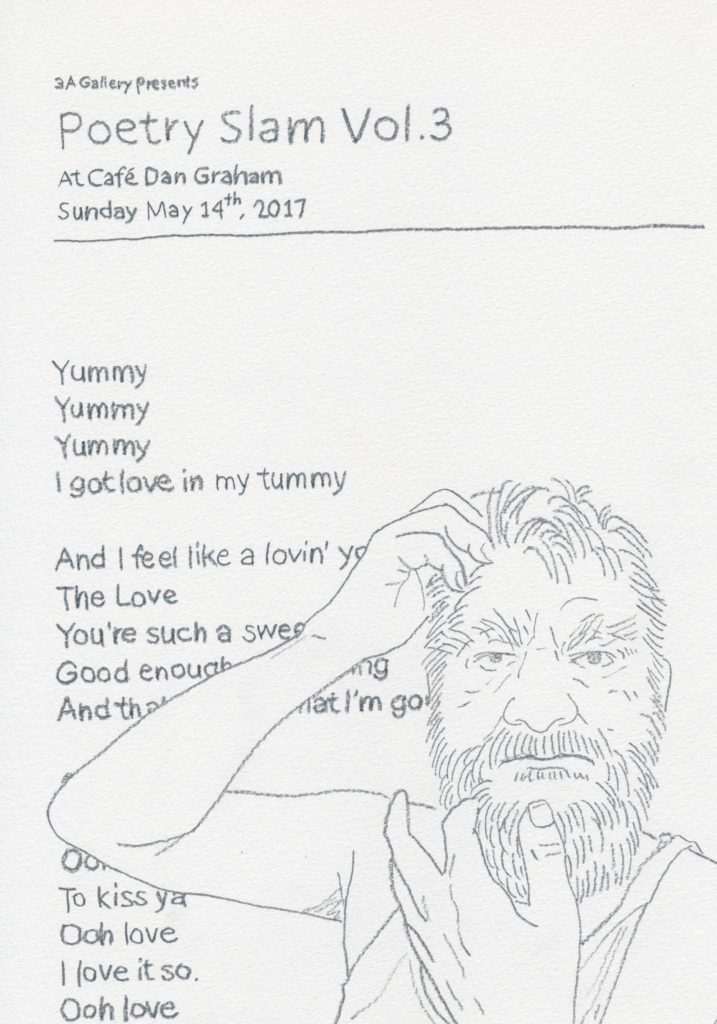 3A Gallery Presents
Poetry Slam Vol.3
At Café Dan Graham
Sunday May 14th, 2017
Yummy
Yummy
Yummy
I got love in my tummy
And I feel like a lovin'
The Love
You're such a
Good enough
And I'm
To kiss ya
Ooh love
I love it so.
Ooh love